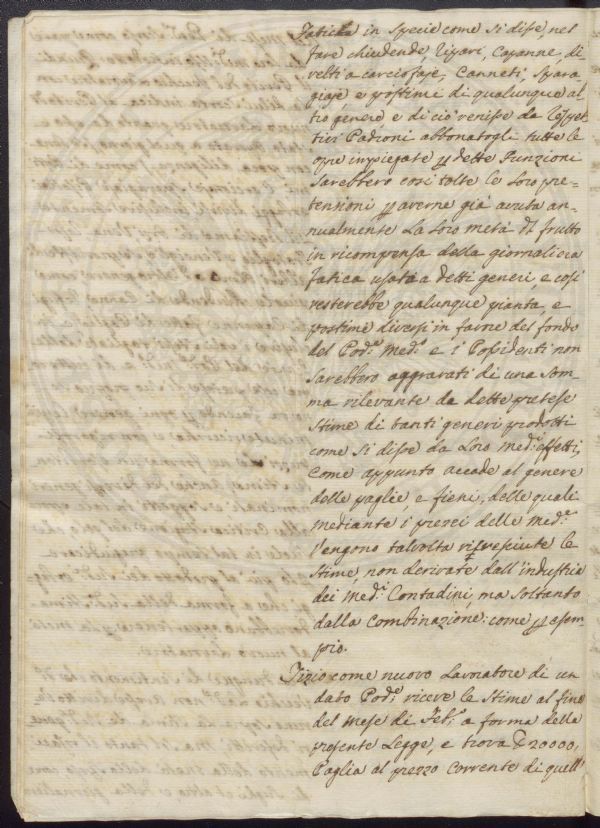 Fatiche in specie come si disse, nel
fare chiudende, ripari, capanne, di
velti a carciofaje, Canneti, Spara
giaje, e postime di qualunque al
tro genere e di ciò venisse da rispet
tivi Padroni abbonatogli tutte le
opre impiegate p dette Funzioni
Sarebbero così tolte le loro pre=
tensioni p averne già avuta an=
nualmente La loro metà di frutto
in ricompensa della giornaliera
fatica usata a detti generi, e così
resterebbe qualunque pianta, e
postime diversi in favore del fondo
del Pod.e Med.o e i Possidenti non
Sarebbero aggravati di una som=
ma rilevante da dette pretese
Stime di tanti generi prodotti
come si disse da Loro Med.i effetti,
Come appunto accade al genere
delle paglie, e fieni, delle quali
mediante i prezzi delle Med.e
Vengono talvolta rincresciute le
Stime, non derivate dall'industria
dei Med.i Contadini, ma soltanto
dalla Combinazione: come p esem=
pio.
Tizio come nuovo Lavoratore di un
dato Pod.e riceve le Stime al fine
del Mese di Feb.o a forma della
presente Legge, e trova 20000,
Paglia al prezzo Corrente di quell'